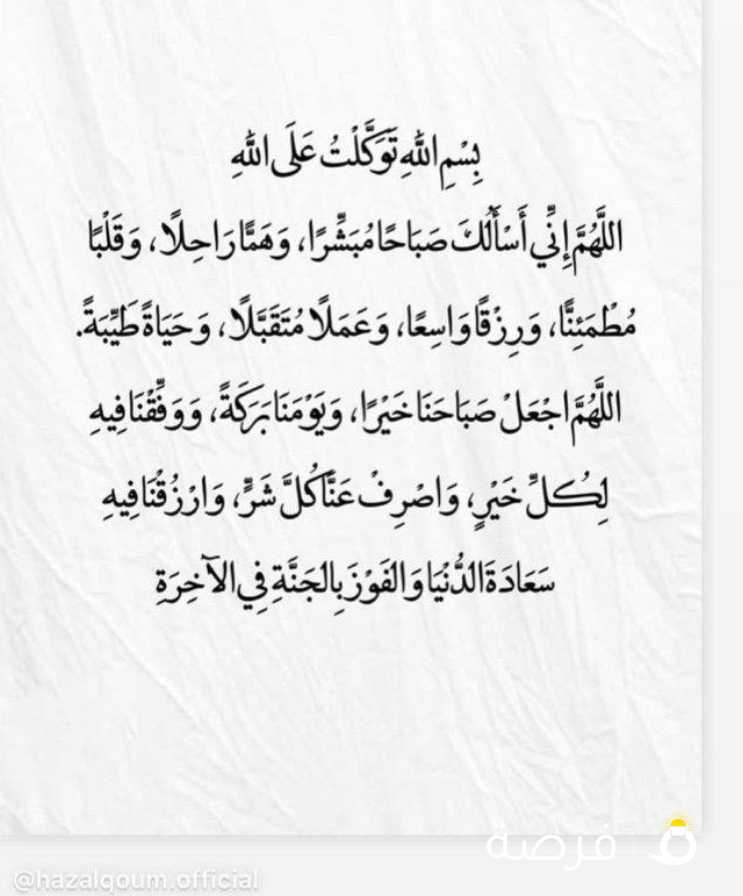 بِسْمِ اللّٰهِ تَوَكَّلْتُ عَلَى اللّٰهِ
اللَّهُمَّ إِنِّي أَسْأَلُكَ صَبَاحًا مُبَشِّرًا، وَهَمًّا رَاحِلًا، وَقَلْبًا
مُطْمَئِنًّا، وَرِزْقًا وَاسِعًا، وَعَمَلًا مُتَقَبَّلًا، وَحَيَاةً طَيِّبَةً.
اللَّهُمَّ اجْعَلْ صَبَاحَنَا خَيْرًا، وَيَوْمَنَا بَرَكَةً، وَوَفِّقْنَا فِيهِ
لِكُلِّ خَيْرٍ، وَاصْرِفْ عَنَّا كُلَّ شَرٍّ، وَارْزُقْنَا فِيهِ
سَعَادَةَ الدُّنْيَا وَالفَوْزَ بِالجَنَّةِ فِي الآخِرَةِ
فرصة
@hazalqoum.official